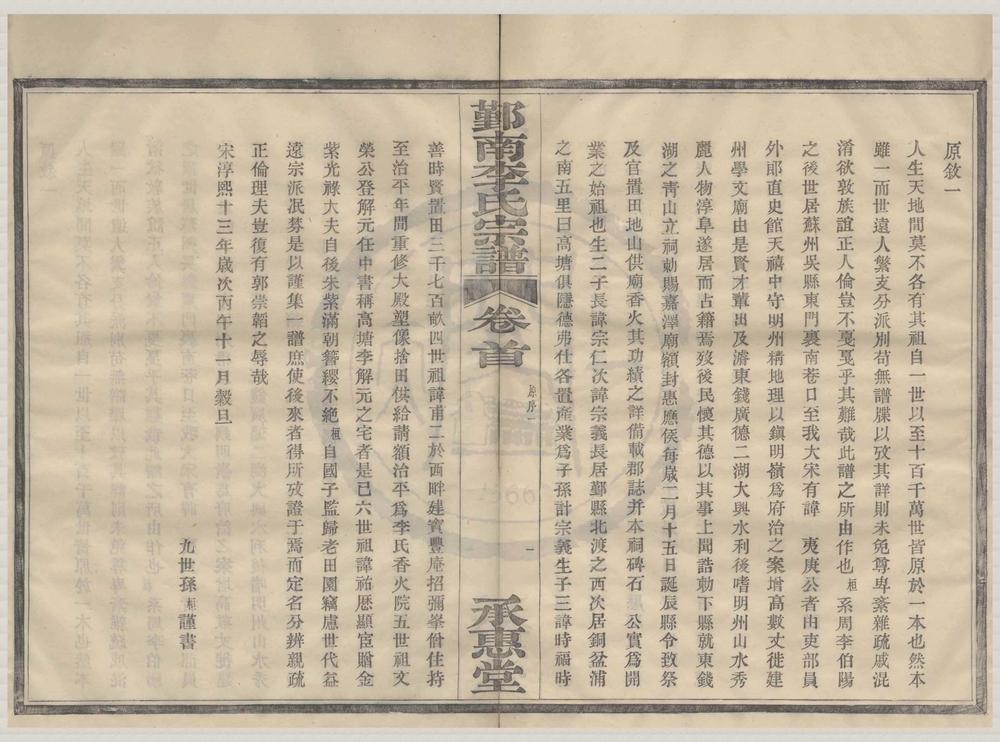 原敘一
人生天地間莫不各有其祖自一世以至十百千萬世皆原於一本也然本
雖一而世遠人繁支分派別苟無譜牒以攷其詳則未免尊卑紊雜疏戚混
淆欲敦族誼正人倫豈不戛戛乎其難哉此譜之所由作也桓系周李伯陽
之後世居蘇州吳縣東門裏南巷口至我大宋有諱 夷庚公者由吏部員
外郎直史館天禧中守明州精地理以鎮明嶺爲府治之案增高數丈徙建
州學文廟由是賢才輩出及濬東錢廣德二湖大興水利後嗜明州山水秀
麗人物淳阜遂居而占籍焉歿後民懷其德以其事上聞誥勅下縣就東錢
湖之青山立祠勅賜嘉澤廟額封惠應侯每歲二月十五日誕辰縣令致祭
及官置田地山供廟香火其功績之詳備載郡誌并本祠碑石 公實爲開
業之始祖也生二子長諱宗仁次諱宗義長居鄞縣北渡之西次居銅盆浦
之南五里曰高塘俱隱德弗仕各置產業爲子孫計宗義生子三諱時福時
鄞南李氏宗譜 卷首 原序一 一 承惠堂
善時賢置田三千七百畝四世祖諱甫二於西畔建實豐庵招彌峯僧住持
至治平年間重修大殿塑像捨田供給請額治平爲李氏香火院五世祖文
榮公登解元任中書稱高塘李解元之宅者是已六世祖諱祐歷顯宦贈金
紫光祿大夫自後朱紫滿朝簪纓不絶桓自國子監歸老田園竊慮世代益
遠宗派泯棼是以謹集一譜庶使後來者得所攷證于焉而定名分辨親疏
正倫理夫豈復有郭崇韜之辱哉
宋淳熙十三年歲次丙午十一月穀旦
九世孫桓謹書